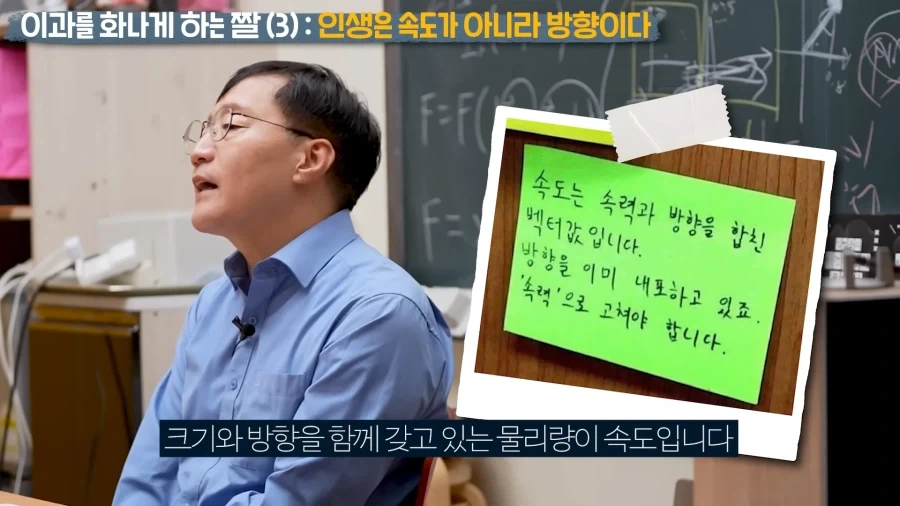 이과를 화나게 하는 짤 (3) : 인생은 속도가 아니라 방향이다
F=F(
F=
속도는 속력과 방향을 합친
벡터값입니다.
방향을 이미 내포하고 있죠.
'속력'으로 고쳐야 합니다.
크기와 방향을 함께 갖고 있는 물리량이 속도입니다